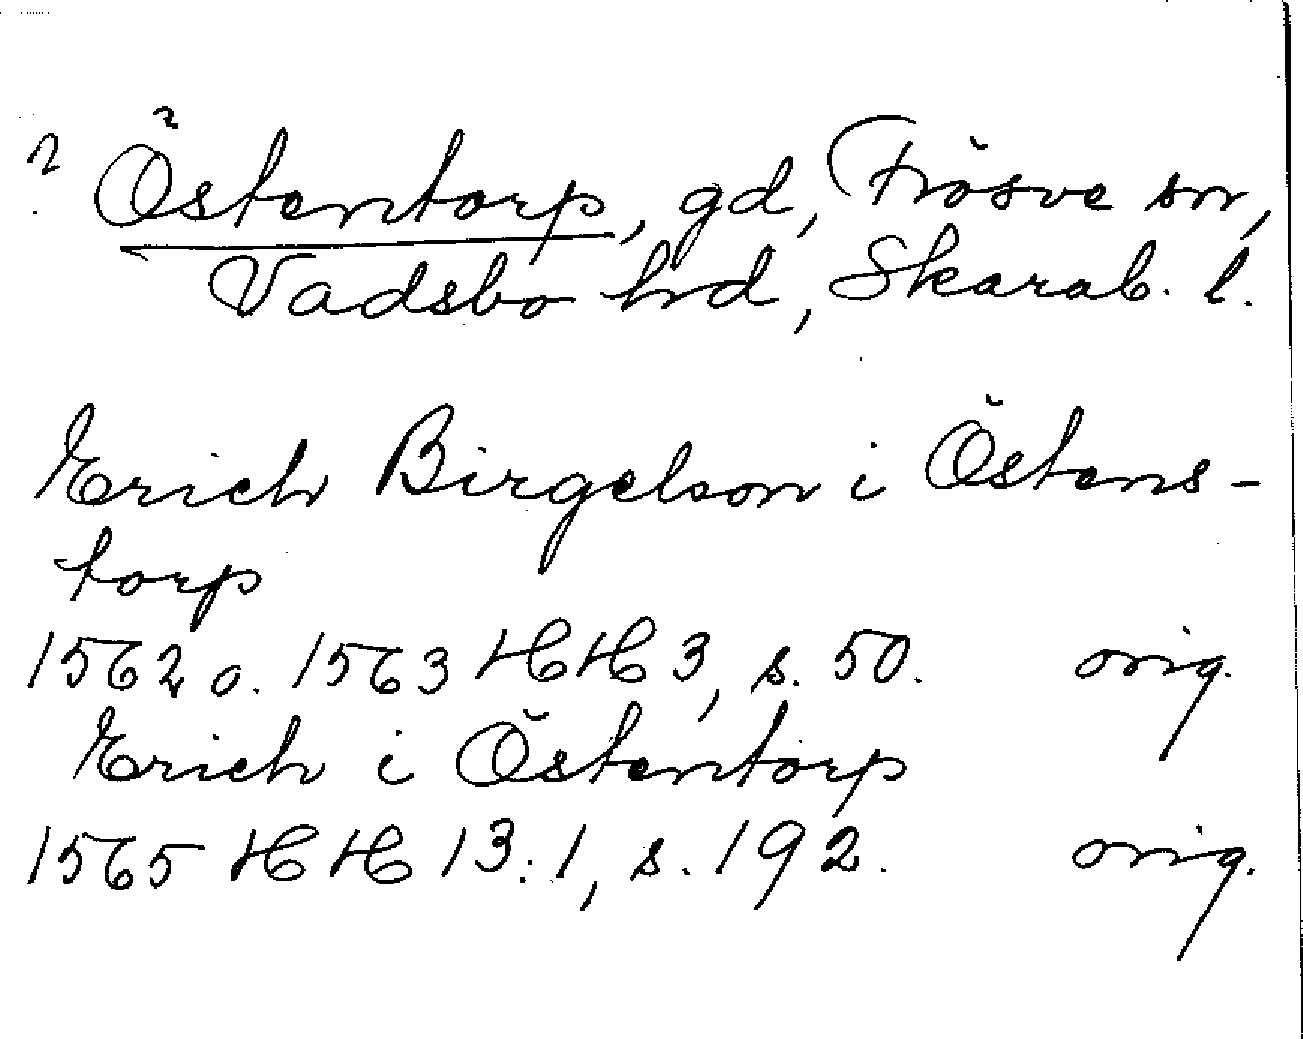 ? Östentorp, gd, Frösve sn,
Vadsbo hd, Skarab. l.
Erich Birgelson i Östens-
torp
1562 o. 1563 HH 3, s. 50. orig.
Erich i Östentorp
1565 HH 13:1, s. 192. orig.